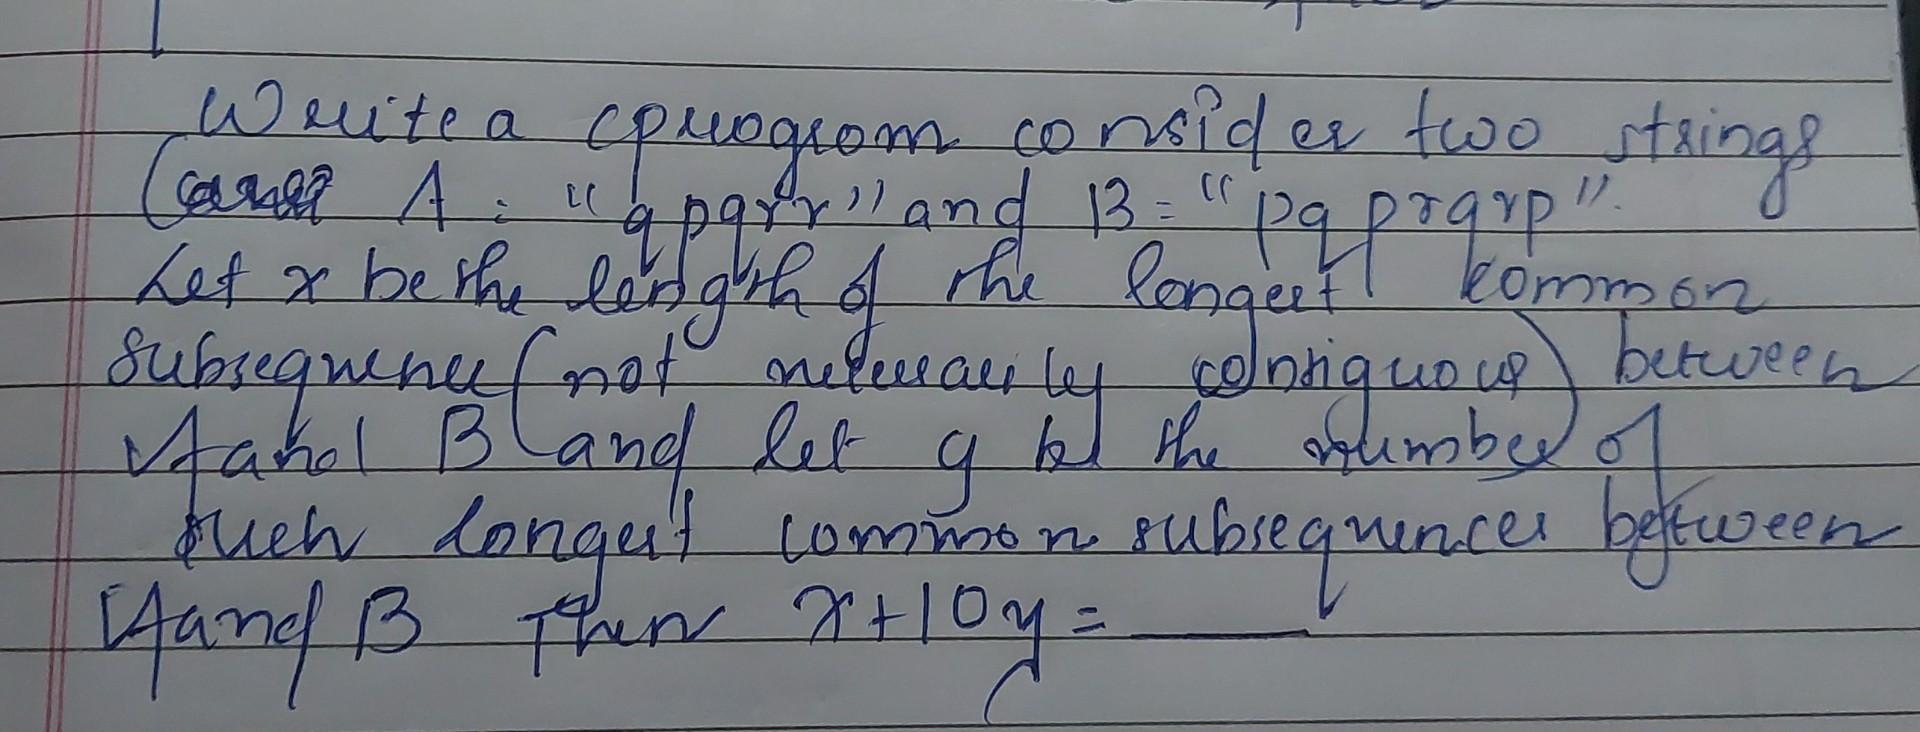 Write a cprogrom consider two strings
A: "qpqrr" and B = "pqprqrp".
Let x be the length of the longest common
subsequence (not necessarily contiguous) between
A and B and let y be the number of
such longest common subsequences between
A and B Then x+10y = ____